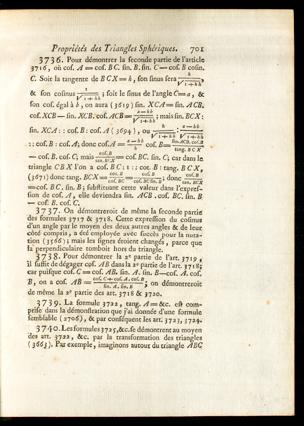 Propriétés des Triangles Sphériques. 701
3736. Pour démontrer la seconde partie de l'article
3716, où cos. A = cos. BC. sin. B. sin. C — cos. B cosin.
C. Soit la tangente de BCX = h, son sinus sera h/√(1+hh)
& son cosinus 1/√(1+hh) ; soit le sinus de l'angle C = a, &
son cos. égal à b, on aura (3619) sin. XCA = sin. ACB.
cos. XCB — sin. XCB. cos. ACB = a—bh/√(1+hh) ; mais sin. BCX :
sin. XCA :: cos. B : cos. A (3694), ou h/√(1+hh) : a—bh/√(1+hh)
:: cos. B : cos. A ; donc cos. A = a—bh/h cos. B = sin. ACB. cos. B/tang. BCX
— cos. B. cos. C; mais cos. B/tang. BCX = cos. BC. sin. C, car dans le
triangle CBX l'on a cos. BC : 1 :: cot. B : tang. BCX,
(3671) donc tang. BCX = cot. B/cos. BC = cos. B/cos. BC sin. B ; donc cos. B/tan. BCX
= cos. BC. sin. B; substituant cette valeur dans l'expres-
sion de cos. A, elle deviendra sin. ACB. cos. BC. sin. B
— cos. B. cos. C.
3737. On démontreroit de même la seconde partie
des formules 3717 & 3718. Cette expression du cosinus
d'un angle par le moyen des deux autres angles & de leur
côté compris, a été employée avec succès pour la nuta-
tion (3566); mais les signes étoient changés, parce que
la perpendiculaire tomboit hors du triangle.
3738. Pour démontrer la 2e partie de l'art. 3719,
il suffit de dégager cos. AB dans la 2e partie de l'art. 3718;
car puisque cos. C = cos. AB. sin. A. sin. B — cos. A. cos.
B, on a cos. AB = cos. C + cos. A. cos. B/sin. A. sin. B ; on démontreroit
de même la 2e partie des art. 3718 & 3720.
3739. La formule 3722, tang. A = &c. est com-
prise dans la démonstration que j'ai donnée d'une formule
semblable (2706), & par conséquent les art. 3723, 3724.
3740. Les formules 3725, &c. se démontrent au moyen
des art. 3722, &c. par la transformation des triangles
(3663). Par exemple, imaginons autour du triangle ABC